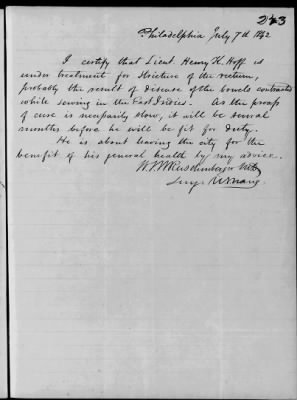 243
Philadelphia July 7th 1842
I certify that Lieut. Henry K. Hoff is
under treatment for stricture of the rectum,
probably the result of disease of the bowels contracted
while serving in the East Indies. As the process
of cure is necessarily slow, it will be several
months before he will be fit for duty.
He is about leaving the city for the
benefit of his general health by my advice.
W. S. W. Ruschenberger
Surg. U.S. Navy